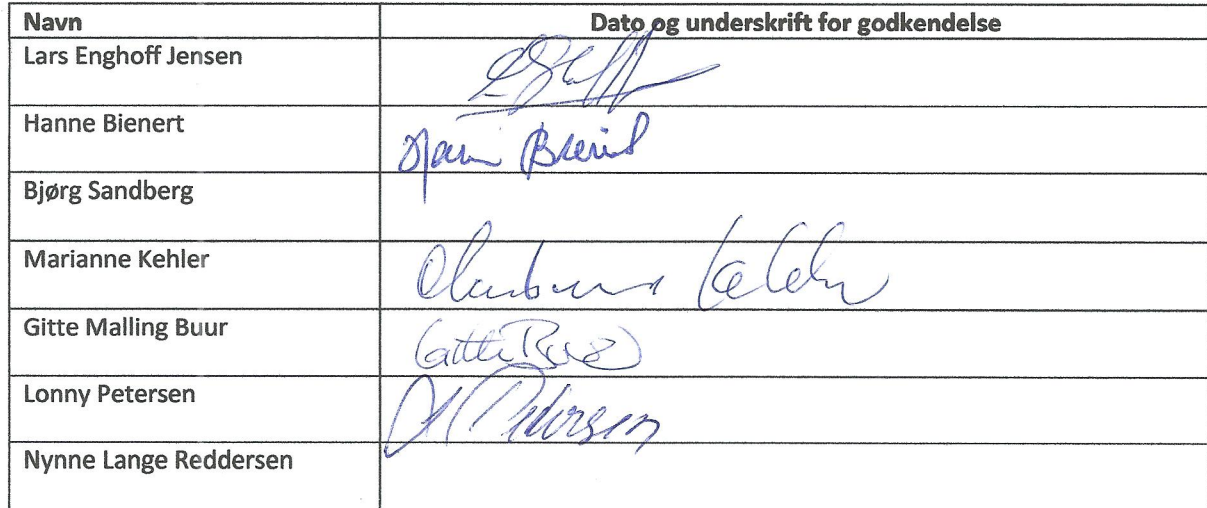 Navn Dato og underskrift for godkendelse
Lars Enghoff Jensen
Hanne Bienert
Bjørg Sandberg
Marianne Kehler
Gitte Malling Buur
Gitte Buur
Lonny Petersen
Petersen
Nynne Lange Reddersen